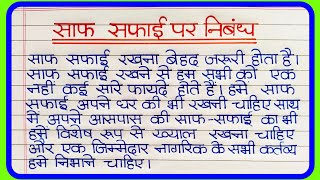 साफ सफाई पर निबंध
साफ सफाई रखना बेहद जरूरी होता है।
साफ सफाई रखने से हम सभी को एक
नहीं कई सारे फायदे होते हैं। हमें साफ
सफाई अपने घर की भी रखनी चाहिए साथ
में अपने आसपास की साफ-सफाई का भी
हमें विशेष रूप से ख्याल रखना चाहिए
और एक जिम्मेदार नागरिक के सभी कर्तव्य
हमें निभाने चाहिए।